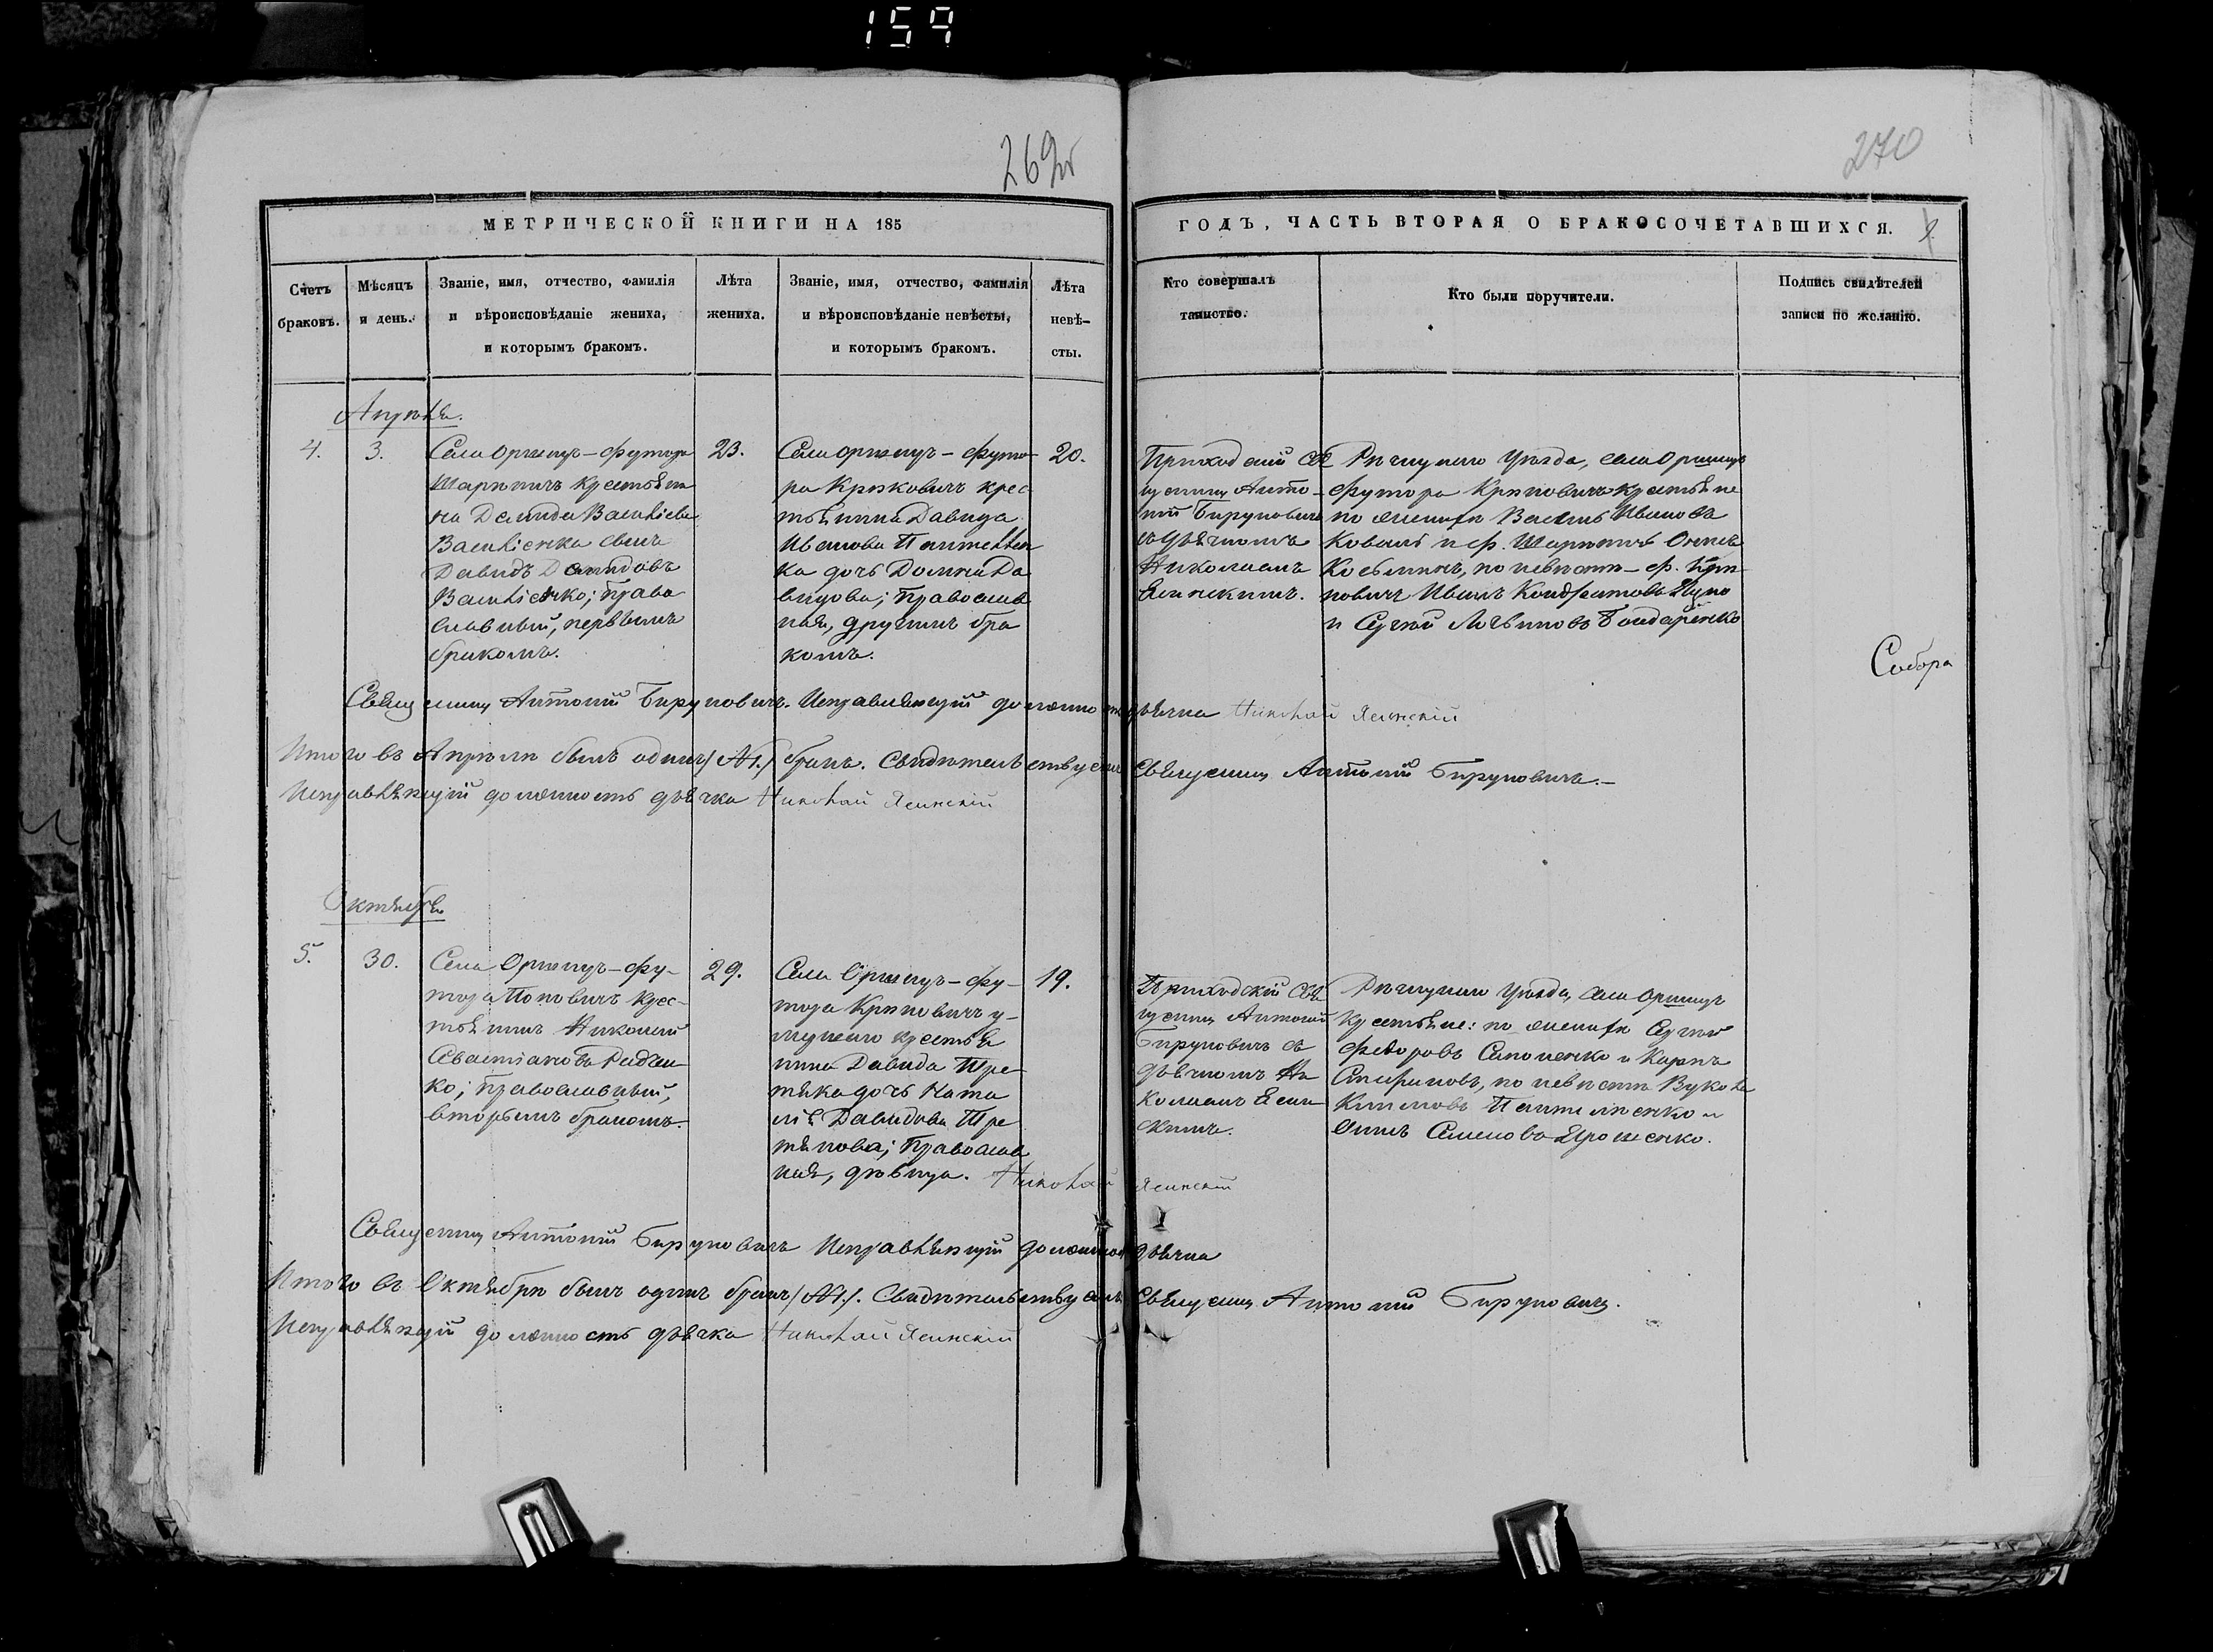 159
269
270
МЕТРИЧЕСКОЙ КНИГИ НА 185
ГОДЪ, ЧАСТЬ ВТОРАЯ О БРАКОСОЧЕТАВШИХСЯ.
Счетъ
браковъ.
Мѣсяцъ
и день.
Званіе, имя, отчество, фамилія
и вѣроисповѣданіе жениха,
и которымъ бракомъ.
Лѣта
жениха.
Званіе, имя, отчество, фамилія
и вѣроисповѣданіе невѣсты,
и которымъ бракомъ.
Лѣта
невѣ-
сты.
Кто совершалъ
таинство.
Кто были поручители.
Подпись свидѣтелей
записи по желанію.
Апрѣля.
4.
3.
Села
крестьяни
на Демида Василіева
Василіенка сынъ
Давидъ Демидовъ
Василіенко; право
славный, первымъ
бракомъ.
23.
Села
ра крес
тьянина Давида
Иванова
ка дочь Домна Да
видова; православ
ная, другимъ бра
комъ.
20.
Приходскій Свя
щенникъ Анто-
ній Бируковичъ
съ дьячкомъ
Николаемъ
Ясинскимъ.
уѣзда, села
футора крестьяне
по женихѣ Василь Ивановъ
Коваль и ф.
по невѣстѣ - ф.
Иванъ Кондратовъ
и Сергѣй Бондаренко
Собора
Священникъ Антоній Бируковичъ. Исправляющій должность дьячка Николай Ясинскій
Итого въ Апрѣлѣ былъ одинъ /№1./ бракъ. Свидѣтельствуемъ Священникъ Антоній Бируковичъ.-
Исправляющій должность дьячка Николай Ясинскій
Октября
5.
30.
Села - фу-
тора Поповичъ крес-
тьянинъ Николай
Севастіановъ Радчен
ко; православный,
вторымъ бракомъ.
29.
Села - фу-
тора у-
мершаго крестья
нина Давида Тре
тяка дочь Ната
лія Давидова Тре
тякова; православ
ная, дѣвица.
19.
Приходскій Свя
щенникъ Антоній
Бируковичъ съ
дьячкомъ Ни
колаемъ Ясин
скимъ.
уѣзда, села
крестьяне: по женихѣ Сергѣй
Федоровъ Сапоненко и Карпъ
по невѣстѣ
Климовъ Пантелѣенко и
Семеновъ Ярошенко.
Николай Ясинскій
Священникъ Антоній Бируковичъ Исправляющій должность дьячка
Итого въ Октябрѣ былъ одинъ бракъ /№1./. Свидѣтельствуемъ Священникъ Антоній Бируковичъ.
Исправляющій должность дьячка Николай Ясинскій